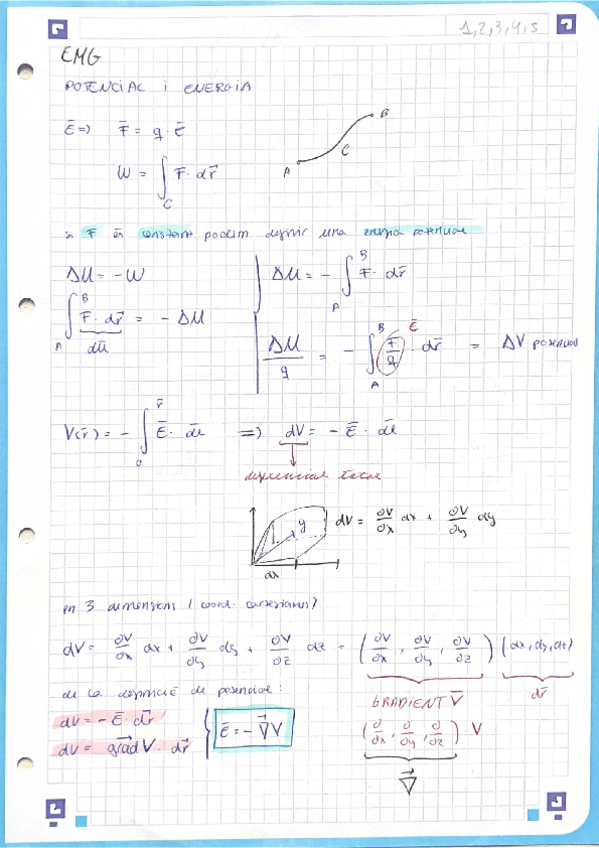 1,2,3,4,5
EMG
POTENCIAL i ENERGIA
Ē ⇒ F̄ = q · Ē
A C B
W = ∫_C F̄ · dr⃗
si F̄ és constant podem definir una energia potencial
ΔU = -W
∫_A^B F̄ · dr⃗ = - ΔU
dū
ΔU = - ∫_A^B F̄ · dr⃗
ΔU/q = - ∫_A^B F̄/q · dr⃗ = ΔV potencial
Ē
V(r̄) = - ∫_0^r̄ Ē · dū ⇒ dV = - Ē · dū
diferencial total
y
dx
dV = ∂V/∂x dx + ∂V/∂y dy
en 3 dimensions (coord. cartesianes)
dV = ∂V/∂x dx + ∂V/∂y dy + ∂V/∂z dz = (∂V/∂x, ∂V/∂y, ∂V/∂z) (dx, dy, dz)
GRADIENT V̄
dr̄
de la definició de potencial:
dV = - Ē · dr⃗
dV = grad V · dr⃗
Ē = - ∇⃗ V
(∂/∂x, ∂/∂y, ∂/∂z) V
∇⃗